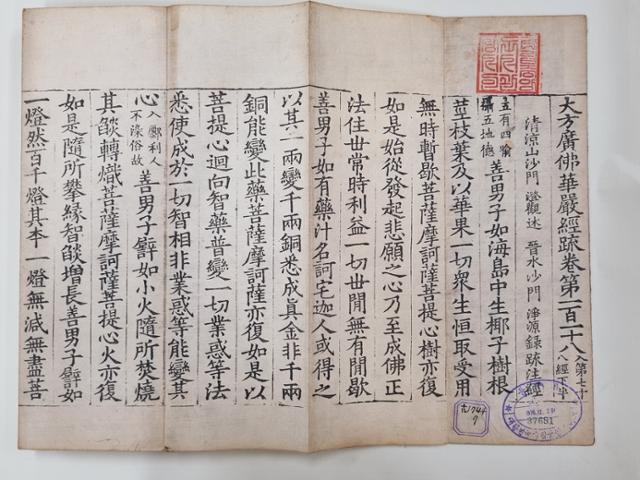 大方廣佛華嚴經䟽卷第一百一十八入第七十八經下半
清涼山沙門 澄觀述 晉水沙門 淨源錄䟽注經
五有四喻攝五地德 善男子如海島中生椰子樹根
莖枝葉及以華果一切衆生恒取受用
無時暫歇菩薩摩訶薩菩提心樹亦復
如是始從發起悲願之心乃至成佛正
法住世常時利益一切世閒無有閒歇
善男子如有藥汁名訶宅迦人或得之
以其一兩變千兩銅悉成眞金非千兩
銅能變此藥菩薩摩訶薩亦復如是以
菩提心迴向智藥普變一切業惑等法
悉使成於一切智相非業惑等能變其
心入鄽利人不染俗故 善男子譬如小火隨所焚燒
其燄轉熾菩薩摩訶薩菩提心火亦復
如是隨所攀緣智燄增長善男子譬如
一燈然百千燈其本一燈無減無盡菩
37651